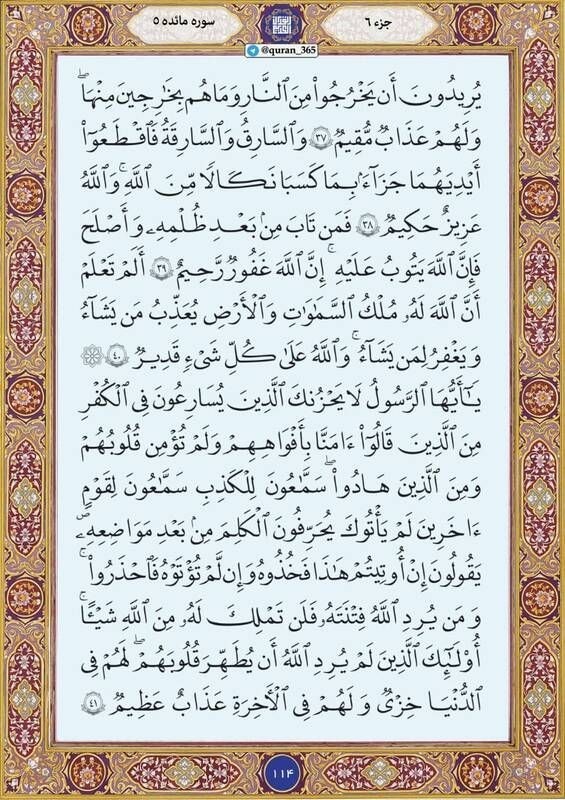 جزء ۶
سوره مائده ۵
@quran_365
يُرِيدُونَ أَن يَخْرُجُوا۟ مِنَ ٱلنَّارِ وَمَا هُم بِخَٰرِجِينَ مِنْهَا ۖ
وَلَهُمْ عَذَابٌ مُّقِيمٌ ۝٣٧ وَٱلسَّارِقُ وَٱلسَّارِقَةُ فَٱقْطَعُوٓا۟
أَيْدِيَهُمَا جَزَآءًۢ بِمَا كَسَبَا نَكَٰلًا مِّنَ ٱللَّهِ ۗ وَٱللَّهُ
عَزِيزٌ حَكِيمٌ ۝٣٨ فَمَن تَابَ مِنۢ بَعْدِ ظُلْمِهِۦ وَأَصْلَحَ
فَإِنَّ ٱللَّهَ يَتُوبُ عَلَيْهِ ۗ إِنَّ ٱللَّهَ غَفُورٌ رَّحِيمٌ ۝٣٩ أَلَمْ تَعْلَمْ
أَنَّ ٱللَّهَ لَهُۥ مُلْكُ ٱلسَّمَٰوَٰتِ وَٱلْأَرْضِ يُعَذِّبُ مَن يَشَآءُ
وَيَغْفِرُ لِمَن يَشَآءُ ۗ وَٱللَّهُ عَلَىٰ كُلِّ شَىْءٍ قَدِيرٌ ۝٤٠ ۞
يَٰٓأَيُّهَا ٱلرَّسُولُ لَا يَحْزُنكَ ٱلَّذِينَ يُسَٰرِعُونَ فِى ٱلْكُفْرِ
مِنَ ٱلَّذِينَ قَالُوٓا۟ ءَامَنَّا بِأَفْوَٰهِهِمْ وَلَمْ تُؤْمِن قُلُوبُهُمْ
وَمِنَ ٱلَّذِينَ هَادُوا۟ ۛ سَمَّٰعُونَ لِلْكَذِبِ سَمَّٰعُونَ لِقَوْمٍ
ءَاخَرِينَ لَمْ يَأْتُوكَ ۖ يُحَرِّفُونَ ٱلْكَلِمَ مِنۢ بَعْدِ مَوَاضِعِهِۦ ۖ
يَقُولُونَ إِنْ أُوتِيتُمْ هَٰذَا فَخُذُوهُ وَإِن لَّمْ تُؤْتَوْهُ فَٱحْذَرُوا۟ ۚ
وَمَن يُرِدِ ٱللَّهُ فِتْنَتَهُۥ فَلَن تَمْلِكَ لَهُۥ مِنَ ٱللَّهِ شَيْـًٔا ۚ
أُو۟لَٰٓئِكَ ٱلَّذِينَ لَمْ يُرِدِ ٱللَّهُ أَن يُطَهِّرَ قُلُوبَهُمْ ۚ لَهُمْ فِى
ٱلدُّنْيَا خِزْىٌ وَلَهُمْ فِى ٱلْءَاخِرَةِ عَذَابٌ عَظِيمٌ ۝٤١
۱۱۴